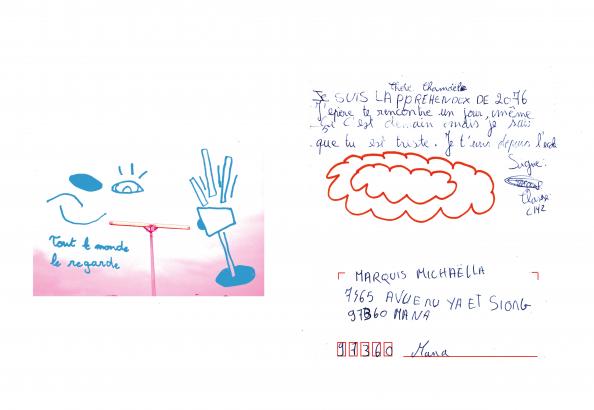 Tout le monde
le regarde
Chère Chamaële
Je SUIS LA PPREHENDEX DE 2076
J'épère te rencontre un jour, même
si c'est demain mais je sais
que tu est triste. Je t'
Signé:
C142
MARQUIS MICHAËLLA
7465 AVUENU YA ET SIONG
97360 MANA
97360 Mana